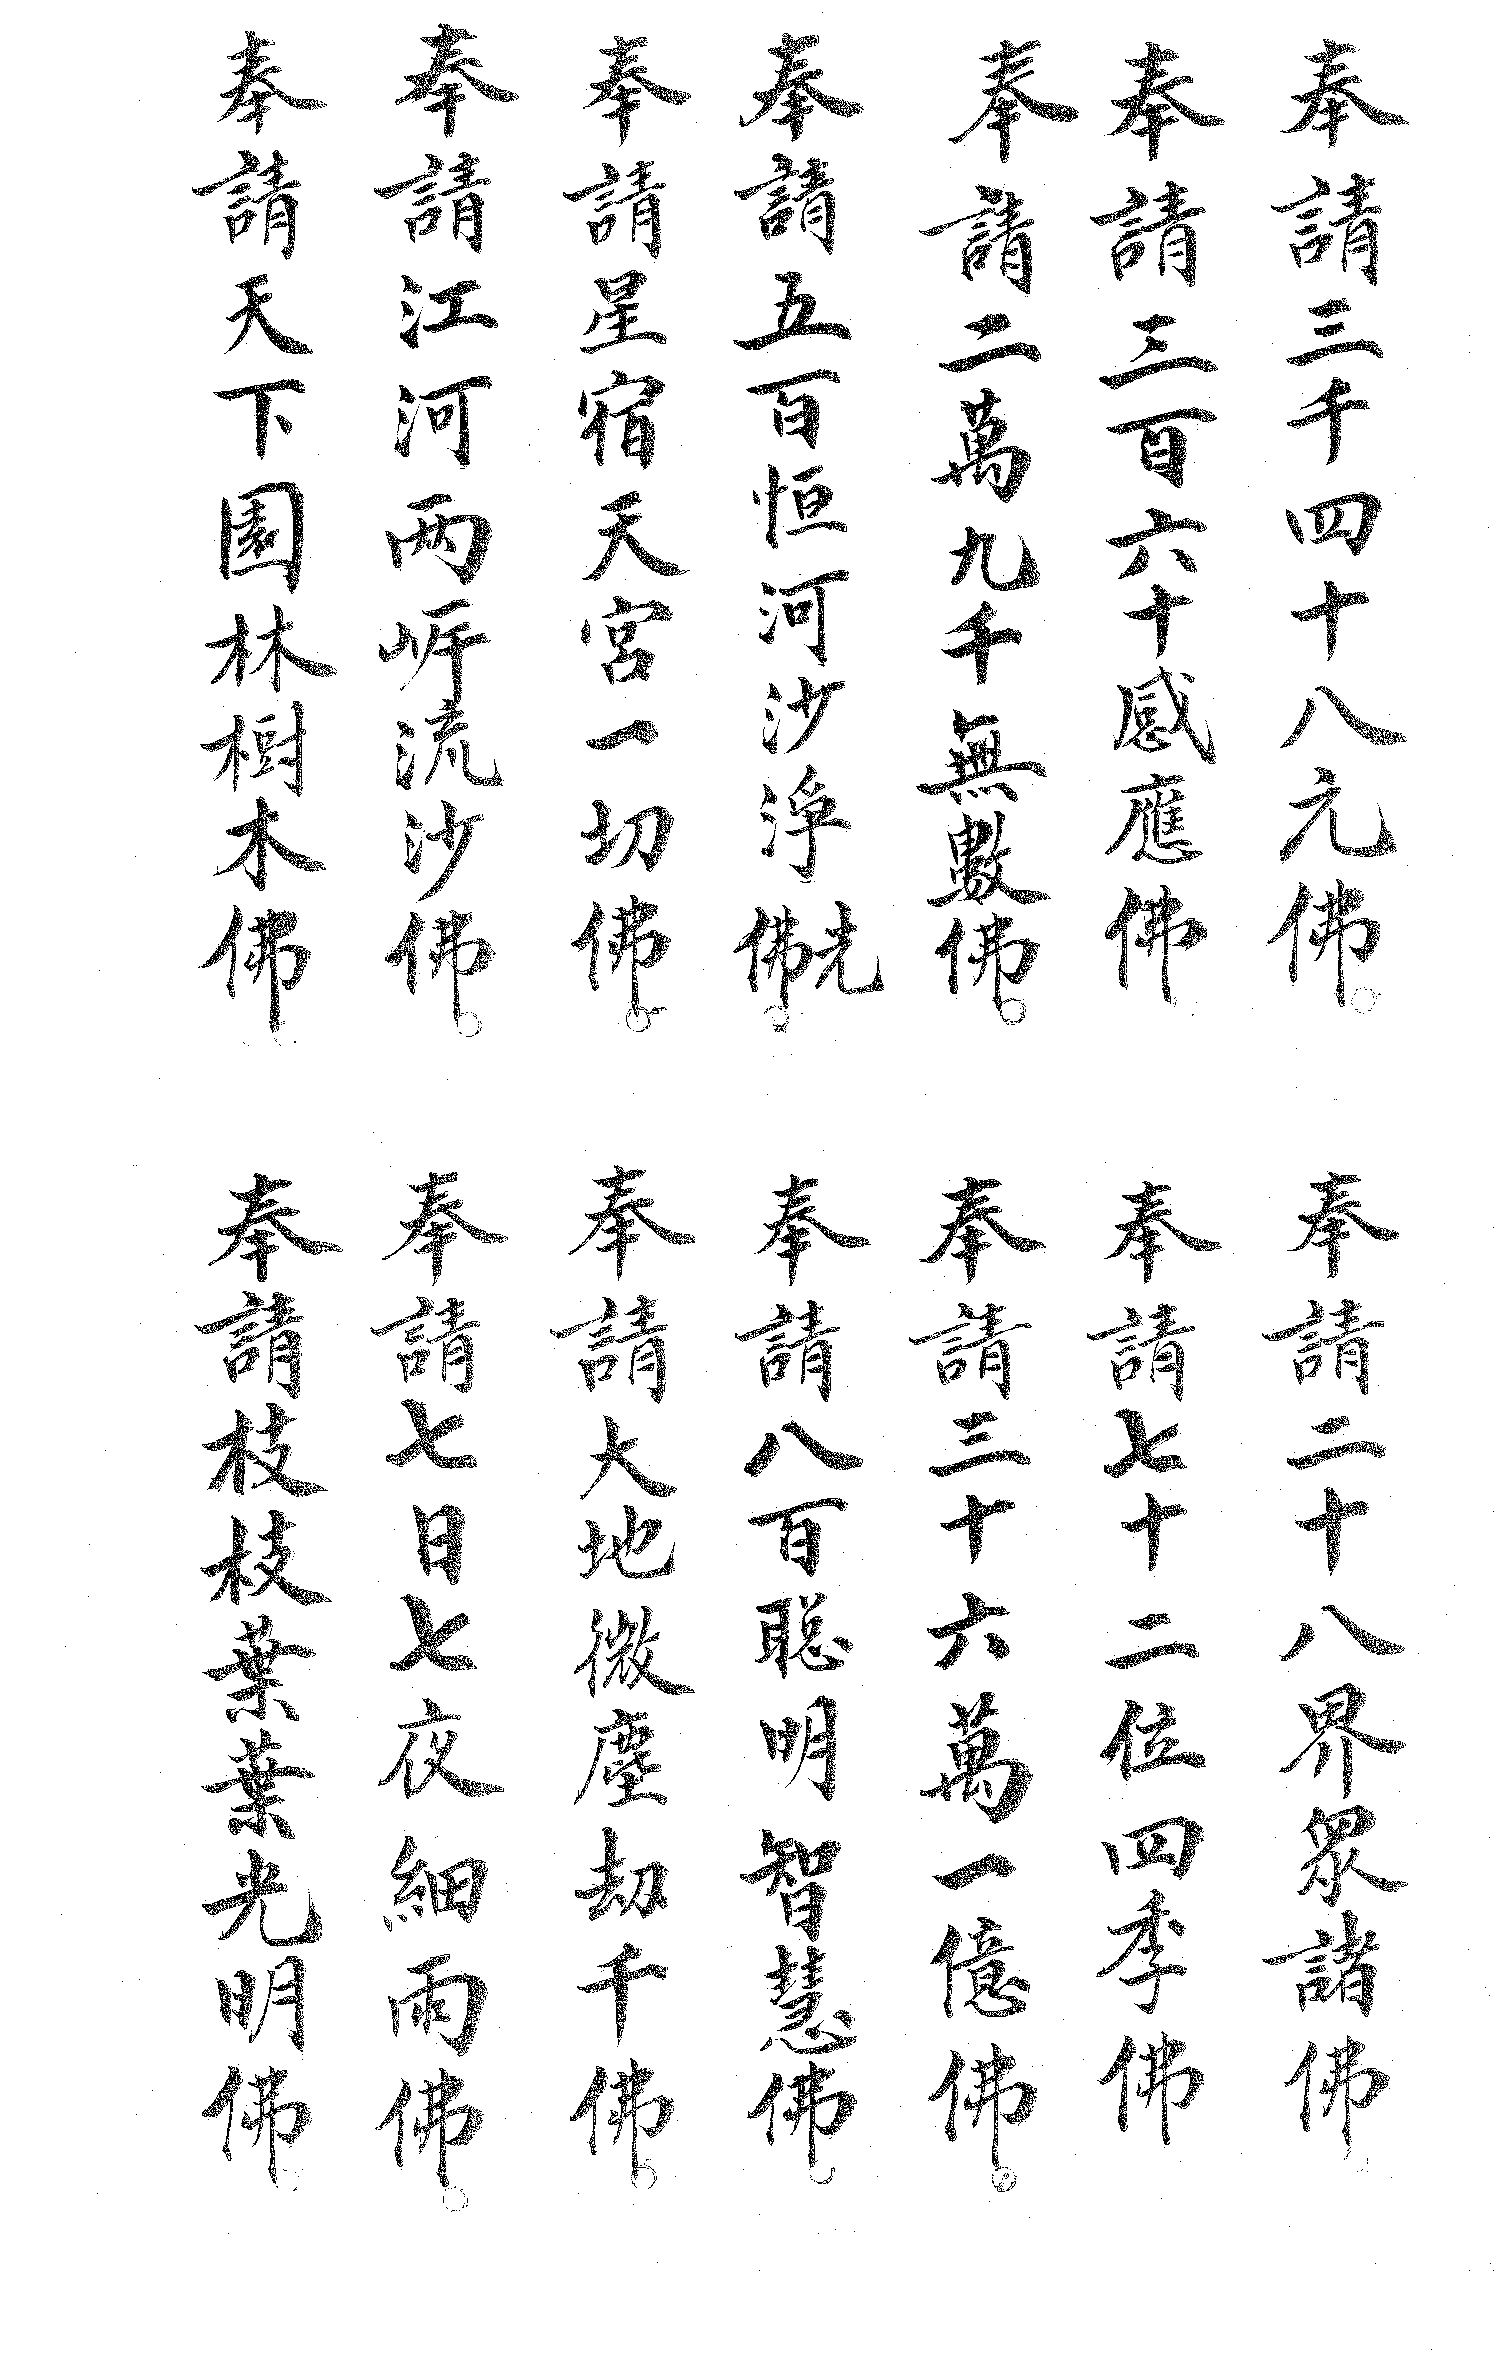 奉請三千四十八元佛
奉請二十八界眾諸佛
奉請三百六十感應佛
奉請七十二位四季佛
奉請二萬九千無數佛
奉請三十六萬一億佛
奉請五百恒河沙淨光佛
奉請八百聪明智慧佛
奉請星宿天宮一切佛
奉請大地微塵劫千佛
奉請江河两岸流沙佛
奉請七日七夜細雨佛
奉請天下園林樹木佛
奉請枝枝葉葉光明佛